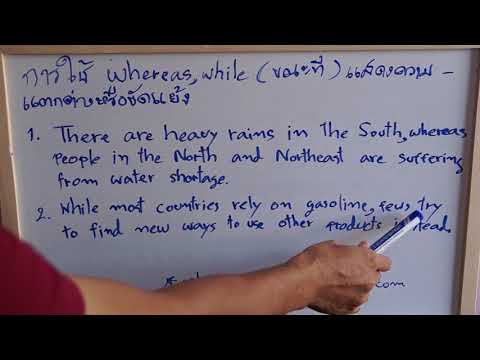 การใช้ whereas, while (ขณะที่) แสดงความ -
แตกต่างหรือขัดแย้ง
1. There are heavy rains in The South, whereas
people in the North and Northeast are suffering
from water shortage.
2. While most countries rely on gasoline, few try
to find new ways to use other products instead.
com